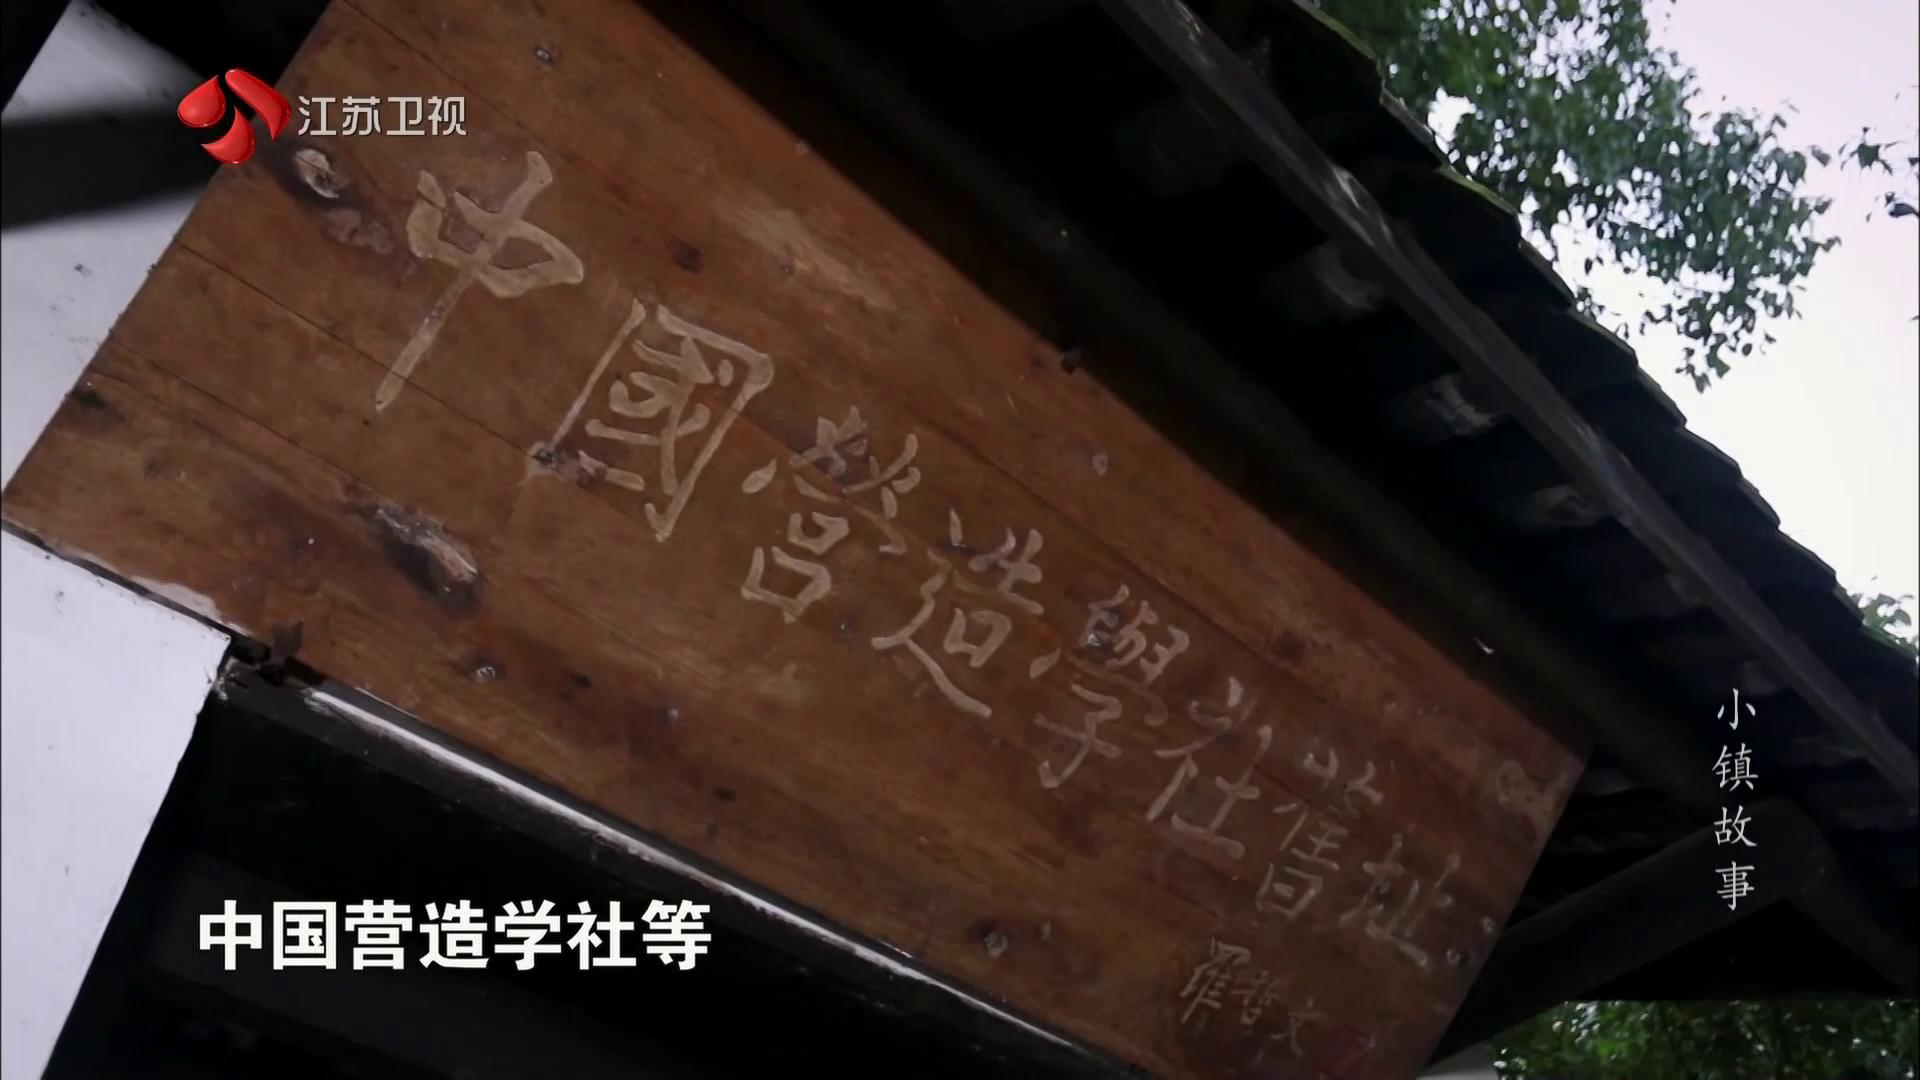 江苏卫视
中國營造學社舊址
羅哲文
小镇故事
中国营造学社等